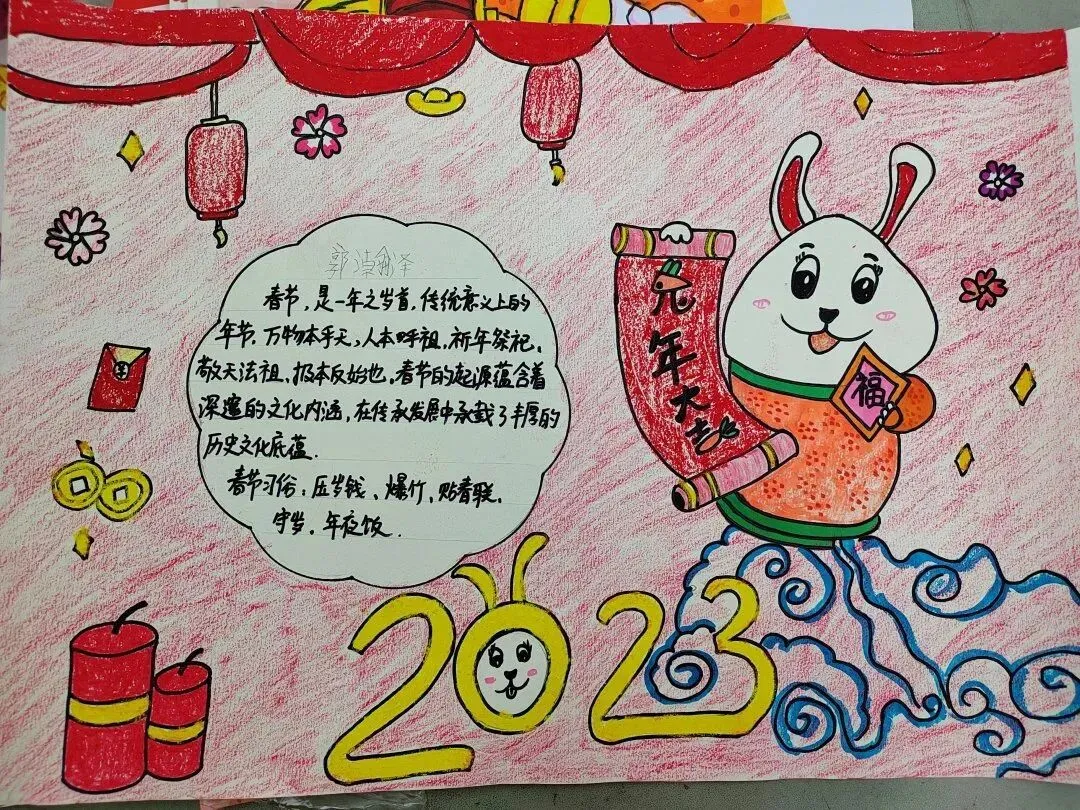 春节，是一年之岁首，传统意义上的
年节。万物本乎天，人本乎祖，祈年祭祀、
敬天法祖，报本反始也。春节的起源蕴含着
深邃的文化内涵，在传承发展中承载了丰厚的
历史文化底蕴.
春节习俗：压岁钱、爆竹、贴春联、
守岁．年夜饭．
兔年大吉
福
2023